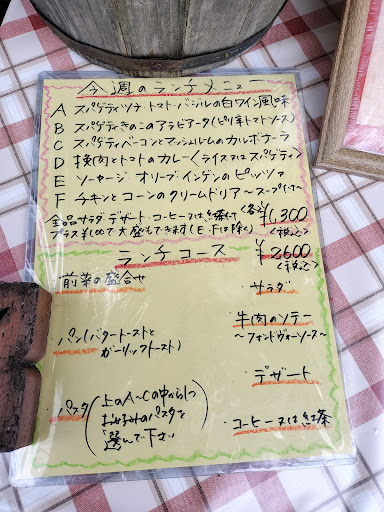 今週のランチメニュー
A スパゲティツナ・トマト・バジルの白ワイン風味
B スパゲティきのこのアラビアータ(ピリ辛トマトソース)
C スパゲティベーコンとマッシュルームのカルボナーラ
D 挽肉とトマトのカレー(ライス又はスパゲティ)
E ソーセージ オリーブ インゲンのピッツァ
F チキンとコーンのクリームドリア〜スープ付〜
全品サラダ・デザート・コーヒー又は紅茶付 (各)¥1,300
プラス¥100で大盛もできます(E・Fは除く) <税込>
ランチコース ¥2600
<税込>
前菜の盛合せ
サラダ
パン(バタートーストと
ガーリックトースト)
牛肉のソテー
〜フォンドヴォーソース〜
デザート
パスタ(上のA〜Cの中から1つ
お好みのパスタを
選んで下さい)
コーヒー又は紅茶